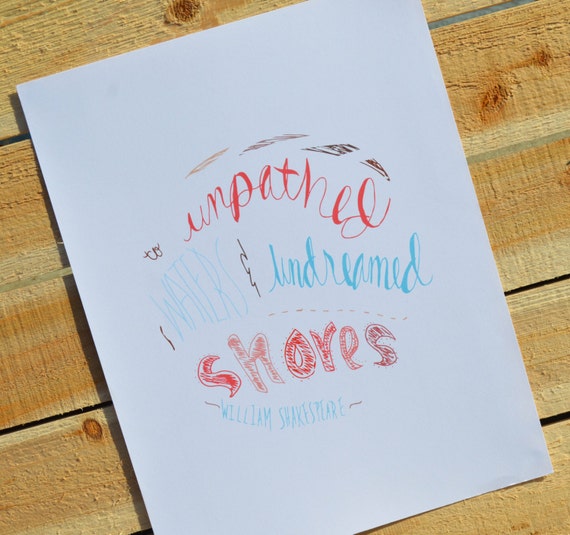 to unpathed
WATERS & undreamed
SHORES
~WILLIAM SHAKESPEARE~